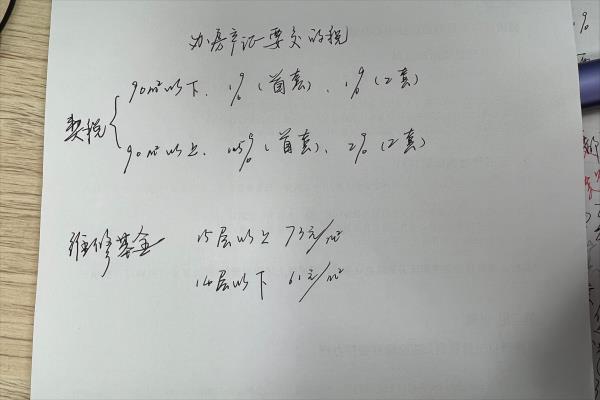 办房产证要交的税
90m²以下、1%(首套)、1%(2套)
契税
90m²以上、1.5%(首套)、2%(2套)
维修基金 15层以上 73元/m²
14层以下 61元/m²